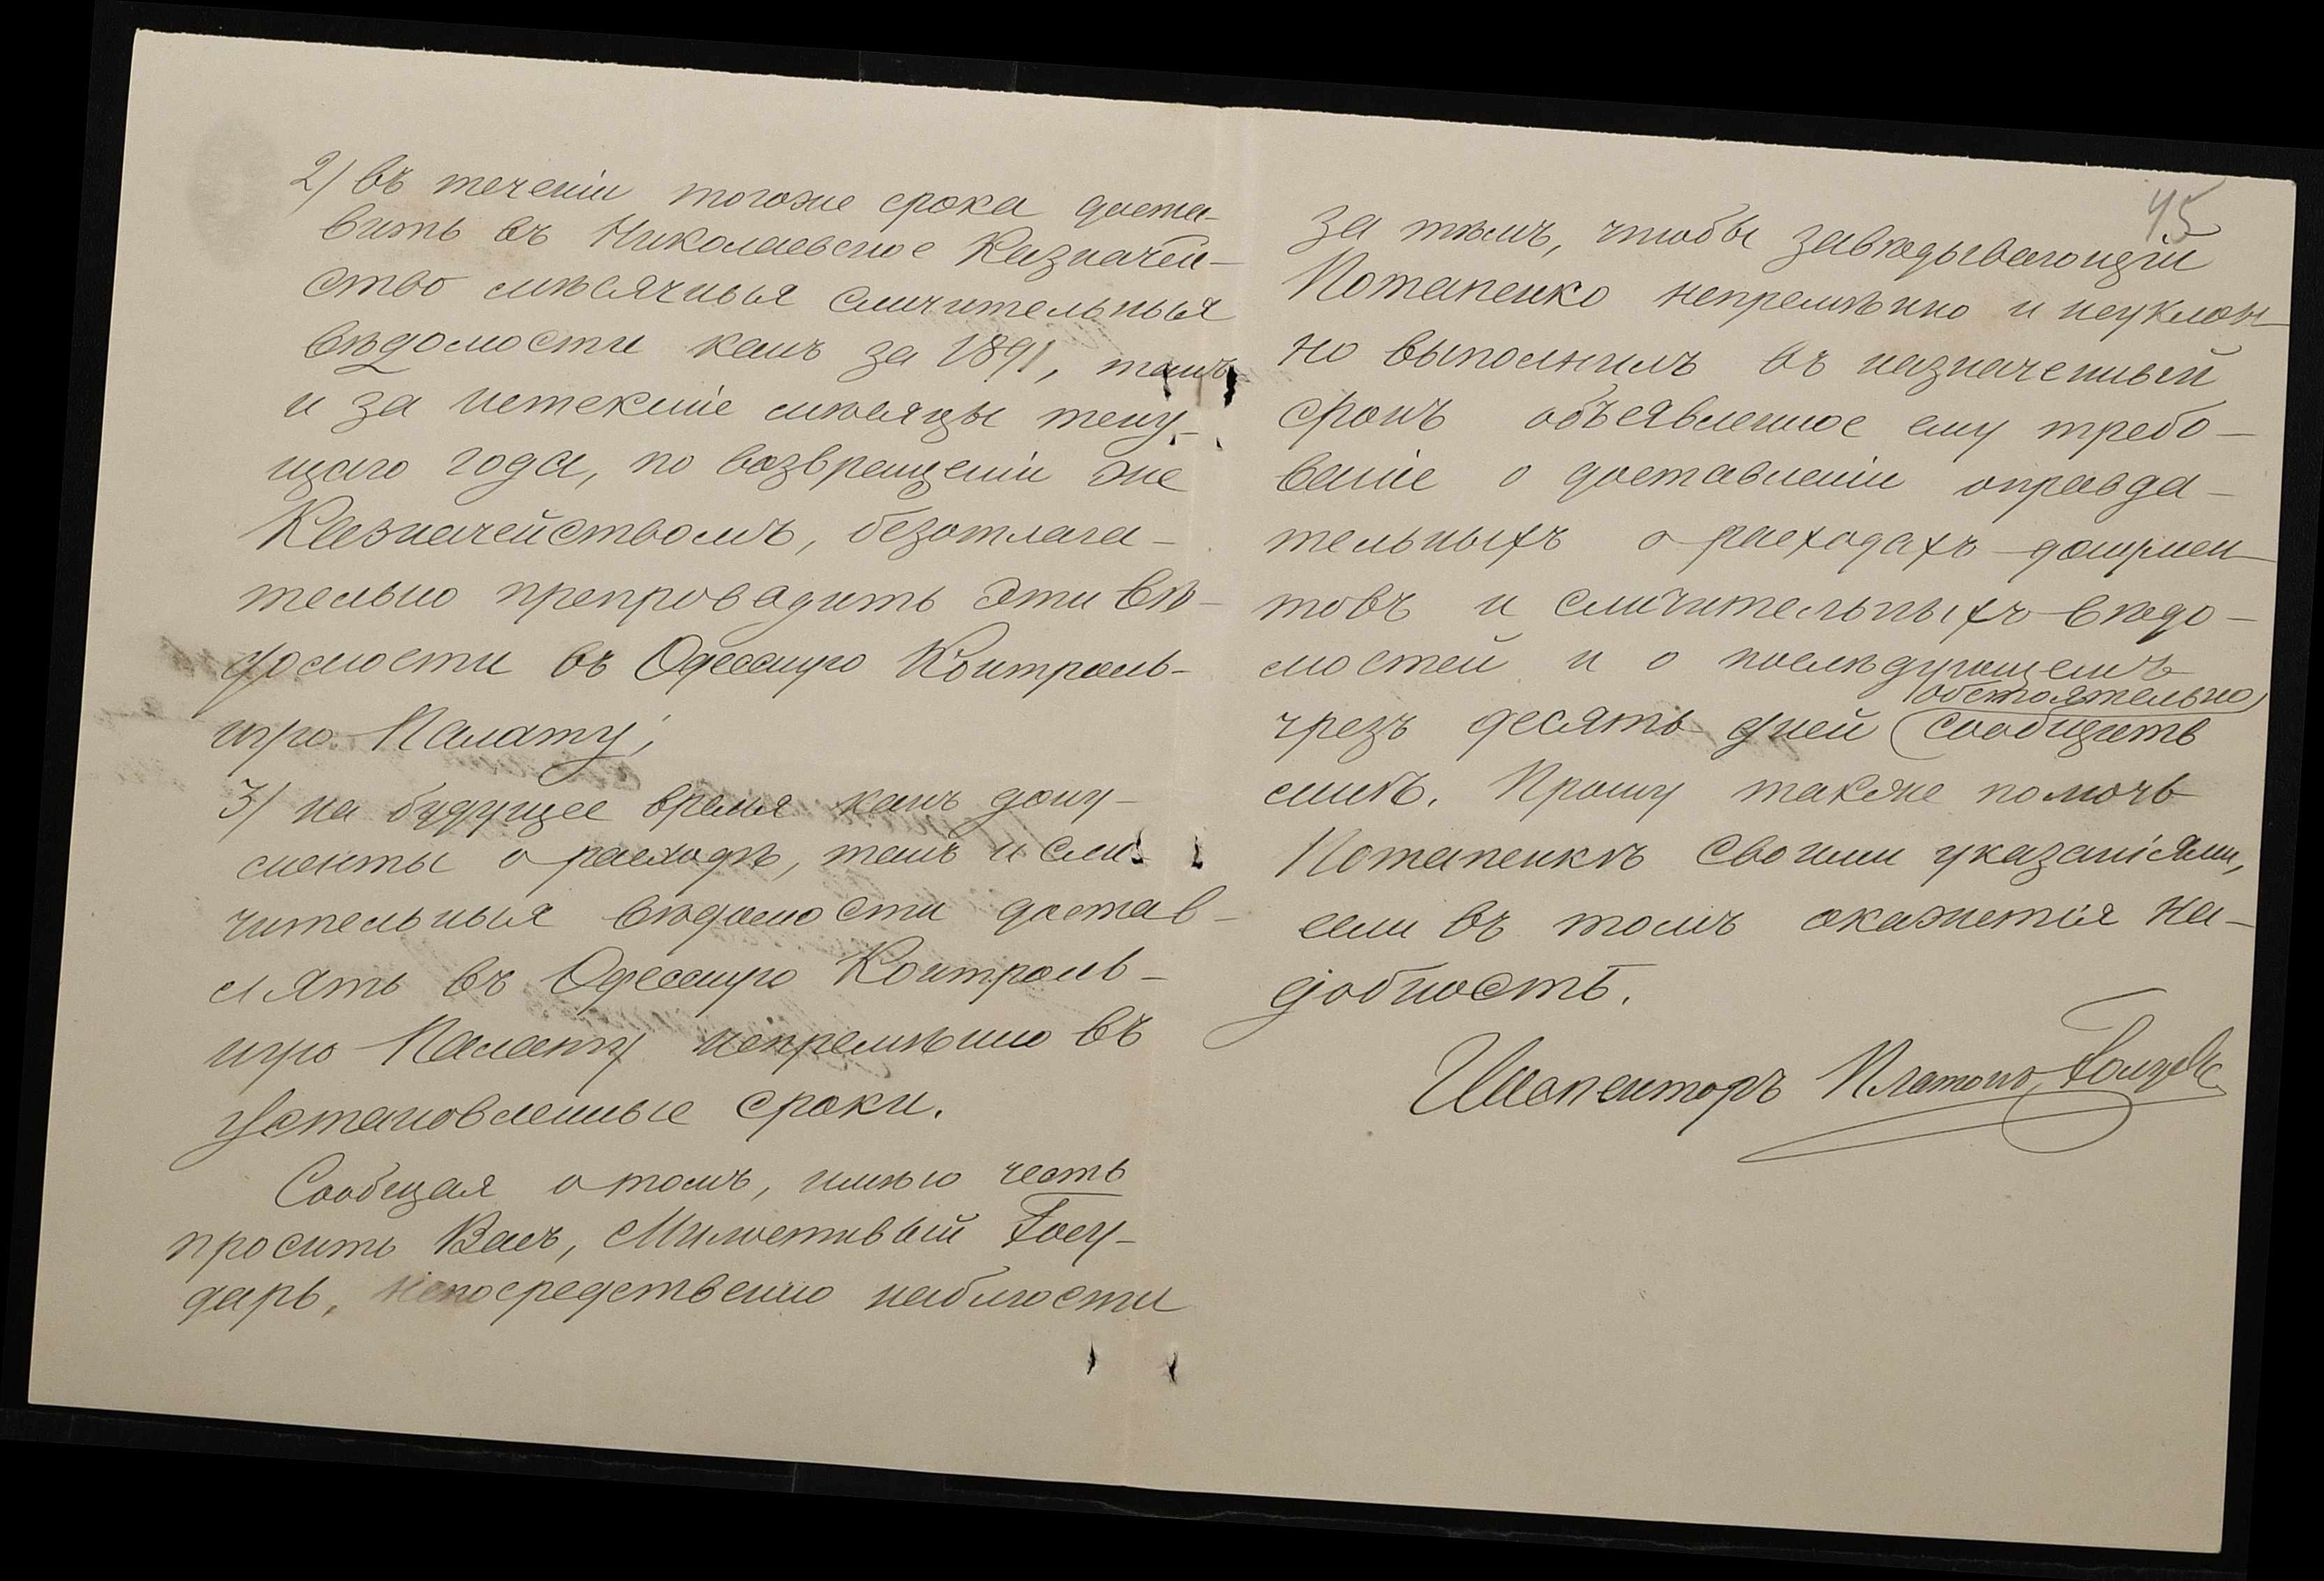 2) въ теченіи тогоже срока доста-
вить въ Николаевское Казначей-
ство мѣсячныя сличительныя
вѣдомости какъ за 1891, такъ
и за истекшіе мѣсяцы теку-
щаго года, по возвращеніи же
Казначействомъ, безотлага-
тельно препроводить эти вѣ-
домости въ Одесскую Контроль-
ную Палату;
3) на будущее время какъ доку-
менты о расходѣ, такъ и сли-
чительныя вѣдомости достав-
лять въ Одесскую Контроль-
ную Палату непремѣнно въ
установленные сроки.
Сообщая о томъ, имѣю честь
просить Васъ, Милостивый Госу-
дарь, непосредственно наблюсти
45
за тѣмъ, чтобы завѣдывающій
Потапенко непремѣнно и неуклон-
но выполнилъ въ назначенный
срокъ объявленное ему требо-
ваніе о доставленіи оправда-
тельныхъ о расходахъ докумен-
товъ и сличительныхъ вѣдо-
мостей и о послѣдующемъ
обстоятельно
чрезъ десять дней сообщить
мнѣ. Прошу также помочь
Потапенкѣ своими указаніями,
если въ томъ окажется на-
добность.
Инспекторъ Платонъ